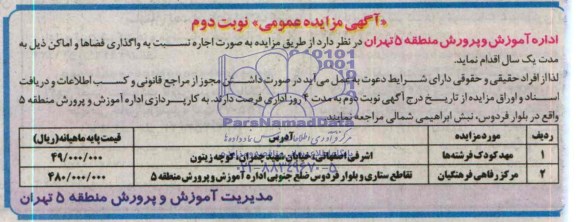 «آگهی مزایده عمومی» نوبت دوم
اداره آموزش و پرورش منطقه ۵ تهران در نظر دارد از طریق مزایده به صورت اجاره نسبت به واگذاری فضاها و اماکن ذیل به
مدت یک سال اقدام نماید.
لذا از افراد حقیقی و حقوقی دارای شرایط دعوت به عمل می آید در صورت داشتن مجوز از مراجع قانونی و کسب اطلاعات و دریافت
اسناد و اوراق مزایده از تاریخ درج آگهی نوبت دوم به مدت ۴ روز اداری فرصت دارند. به کارپردازی اداره آموزش و پرورش منطقه ۵
واقع در بلوار فردوس، نبش ابراهیمی شمالی مراجعه نمایند.
ParsNamadData
ردیف مورد مزایده آدرس قیمت پایه ماهیانه (ریال)
۱ مهد کودک فرشته‌ها اشرفی اصفهانی، خیابان شهید چمران، کوچه زیتون ۴۹/۰۰۰/۰۰۰
۲ مرکز رفاهی فرهنگیان تقاطع ستاری و بلوار فردوس ضلع جنوبی اداره آموزش و پرورش منطقه ۵ ۴۸۰/۰۰۰/۰۰۰
۰۲۱-۸۸۳۴۹۶۷۰-۵
مدیریت آموزش و پرورش منطقه ۵ تهران